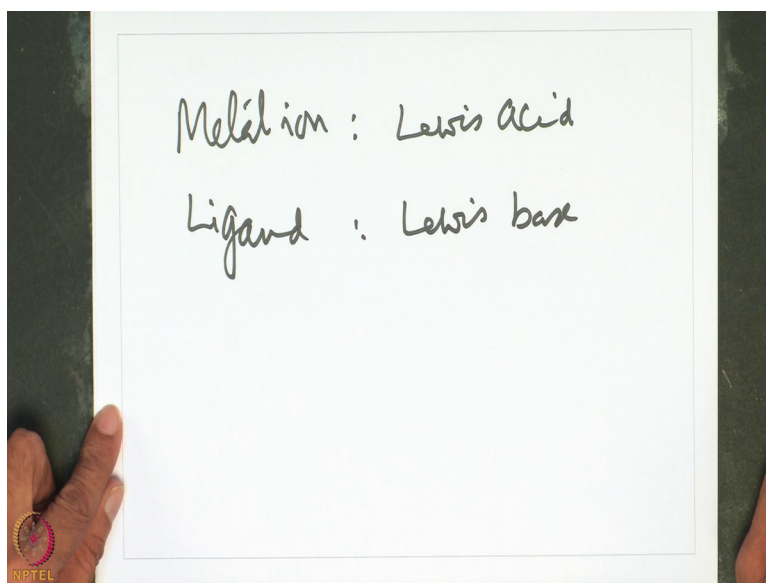 Metal ion : Lewis acid
Ligand : Lewis base
NPTEL